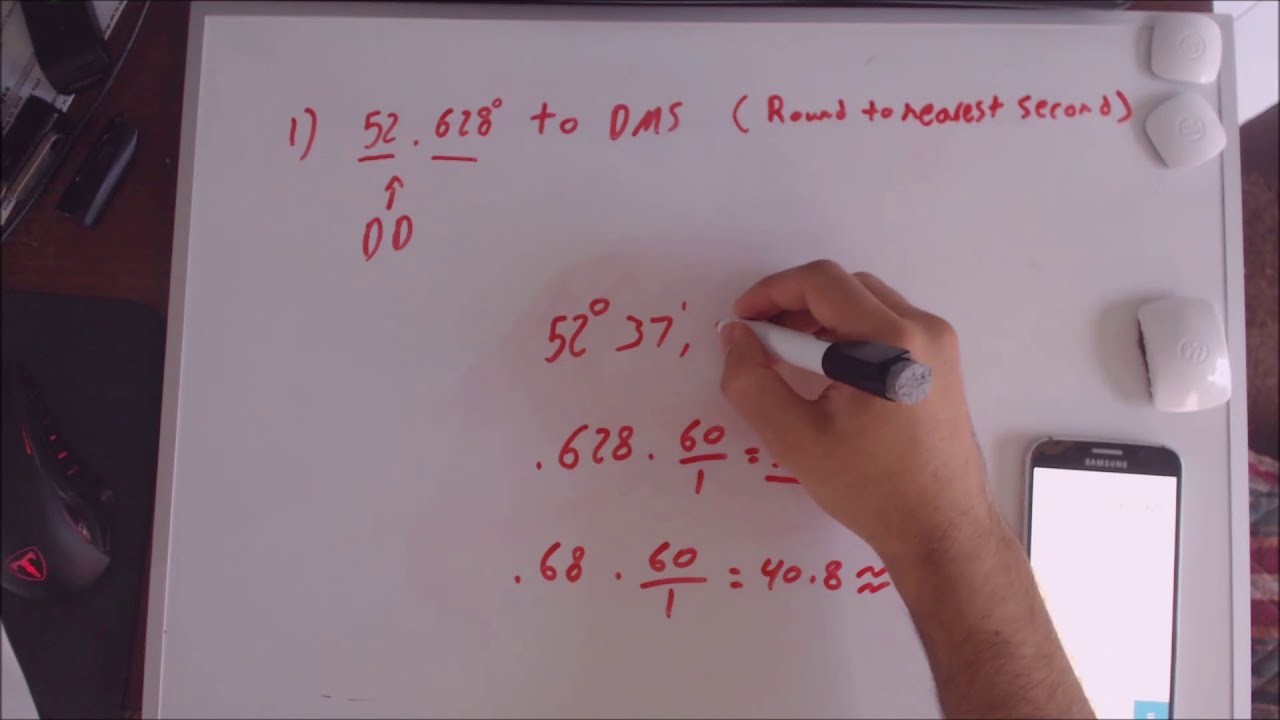 1) 52.628° to DMS (Round to nearest second)
DD
52° 37',
.628 · 60/1 =
.68 · 60/1 = 40.8 ≈
SAMSUNG